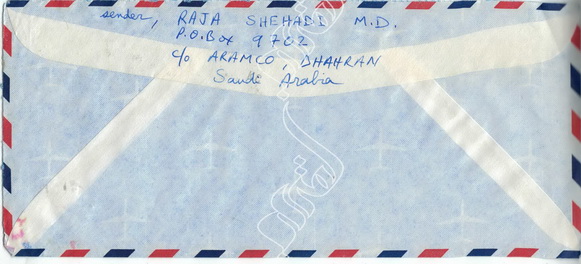 sender, RAJA SHEHADI M.D.
P.O.Box 9702
c/o ARAMCO, DHAHRAN
Saudi Arabia